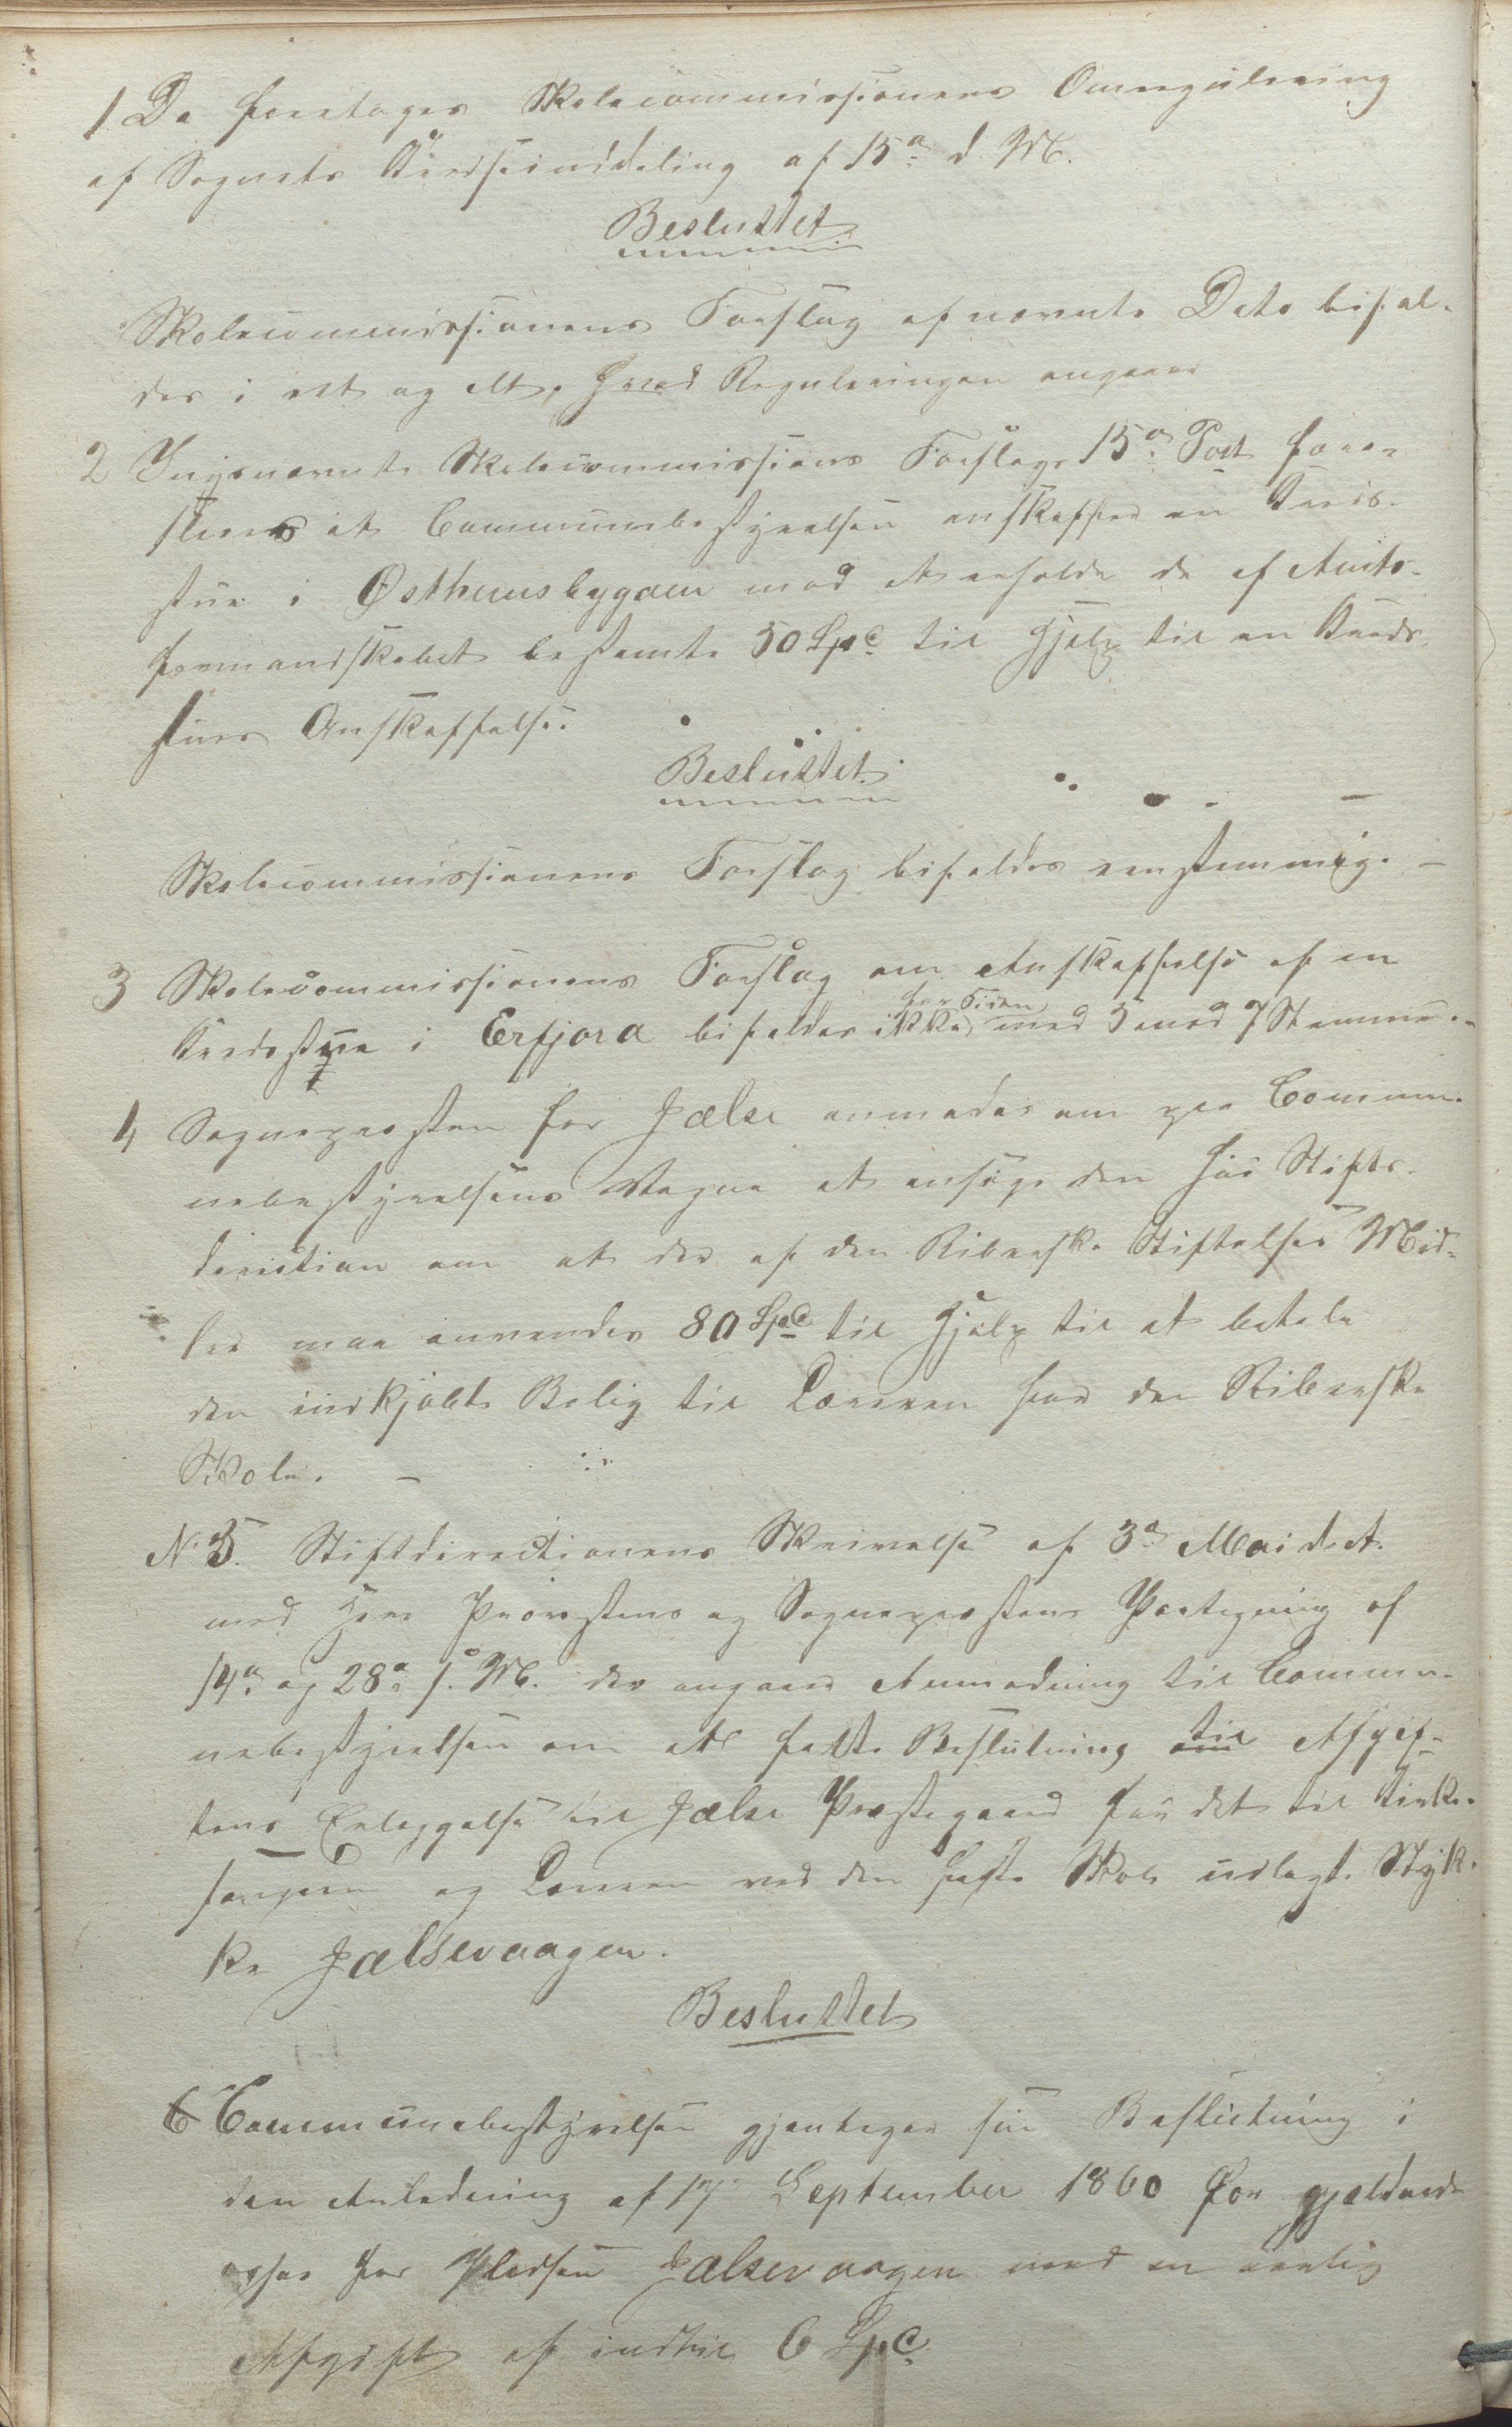 1 Da foretoges Skolecommissionens Omregulering
af Sognets Kredsinddeling af 15de d. M.
Besluttet
Skolecommissionens Forslag af nævnte Dato bifal-
des i eet og alt, hvad Reguleringen angaaer
2 I nysnævnte Skolecommissions Forslags 15de Post fore-
slaaes at Communebestyrelsen anskaffer en Kreds-
stue i Østhusbygden mod at erholde de af Amts-
formandskabet bestemte 50 Spd til Hjelp til en Kreds-
stues Anskaffelse.
Besluttet
Skolecommissionens Forslag bifaldes eenstemmig. -
3 Skolecommissionens Forslag om Anskaffelse af en
Kredsstue i Erfjord bifaldes ikke for Tiden med 5 mod 7 Stemmer.
4 Sognepresten for Jælse anmodes om paa Commu-
nebestyrelsens Vegne at ansøge den høie Stifts-
direction om at der af den Riberske Stiftelses Mid-
ler maa anvendes 80 Spd til Hjelp til at betale
den indkjøbte Bolig til Læreren for den Riberske
Skole. -
N 5. Stiftdirectionens Skrivelse af 3de Mai d. A.
med Herr Provstens og Sogneprestens Paategning af
14de og 28de s. M. der angaaer Anmodning til Commu-
nebestyrelsen om at fatte Beslutning om til Afgif-
tens Erlæggelse til Jælse Præstegaard for det til Kirke-
sangeren og Læreren ved den faste Skole udlagte Styk-
ke Jælsevaagen.
Besluttet
6 Communebestyrelsen gjentager sin Beslutning i
den Anledning af 17 September 1860 for gjældende
for Pladsen Jælsevaagen med en aarlig
Afgift af indtil 6 Spd